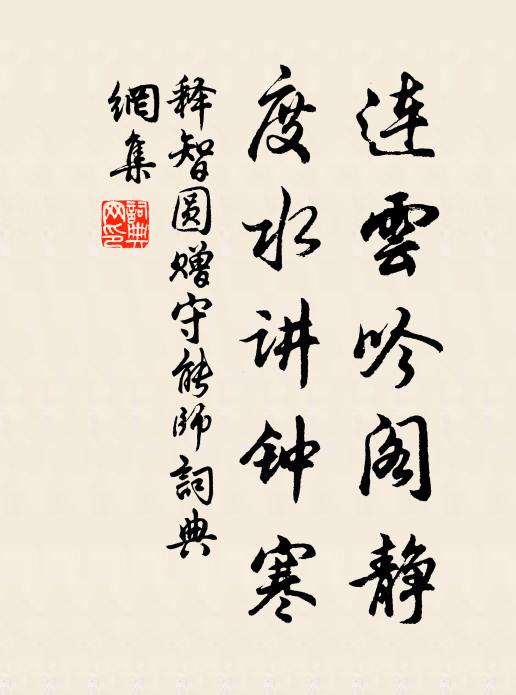 连雲吟阁静
度水讲钟寒
释智圆赠守能师詞典
網集
詞典網印